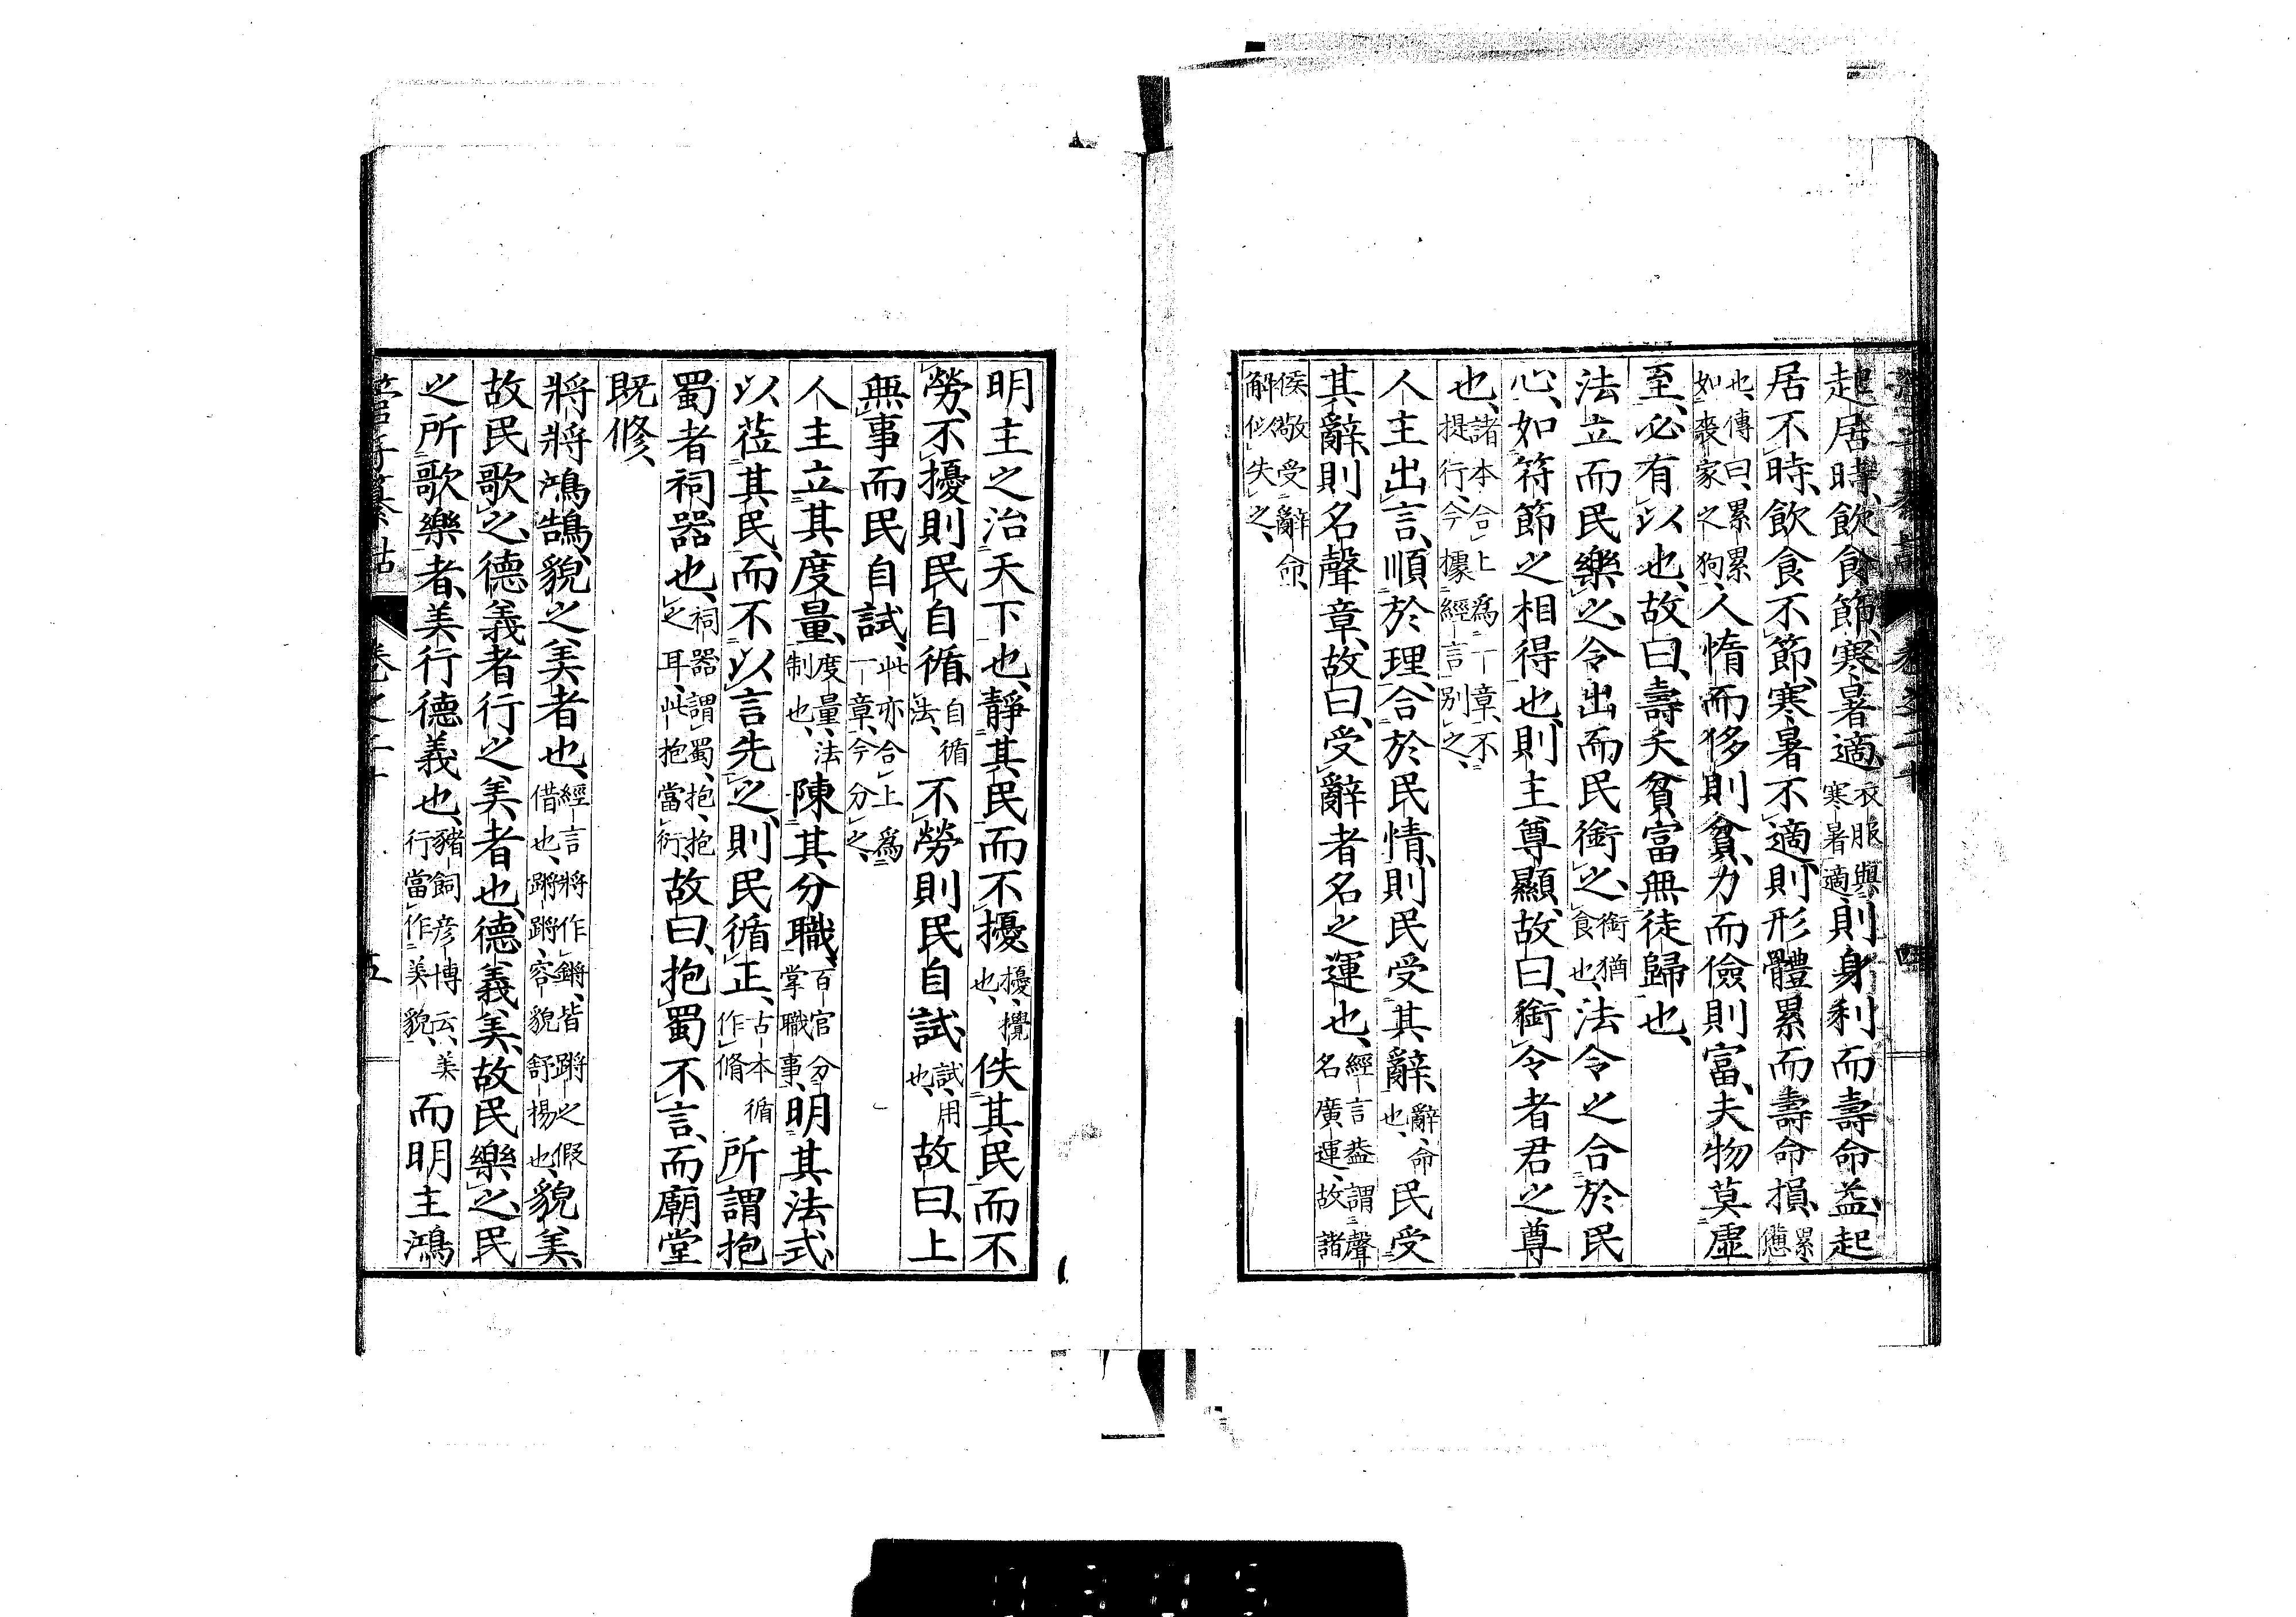 起居時、飲食節、寒暑適、衣服與寒暑適、則身利而壽命益、起
居不時、飲食不節、寒暑不適、則形體累而壽命損、累憊
也、傳曰、累累如喪家之狗、人惰而侈則貧、力而儉則富、夫物莫虛
至、必有以也、故曰、壽夭貧富無徒歸也、
法立而民樂之、令出而民銜之、銜猶食也、法令之合於民
心、如符節之相得也、則主尊顯、故曰、銜令者君之尊
也、諸本合上爲一章、不提行、今據經言別之、
人主出言、順於理、合於民情、則民受其辭、辭、命也、民受
其辭、則名聲章、故曰、受辭者名之運也、經言蓋謂聲名廣運、故諸
侯敬受辭命、解似失之、
明主之治天下也、靜其民而不擾、擾、攪也、佚其民而不
勞、不擾則民自循、自循法、不勞則民自試、試、用也、故曰、上
無事而民自試、此亦合上爲一章、今分之、
人主立其度量、度量、法制也、陳其分職、百官分掌職事、明其法式、
以莅其民、而不以言先之、則民循正、古本循作脩所謂抱
蜀者祠器也、祠器謂蜀、抱、抱之耳、此抱當衍、故曰、抱蜀不言、而廟堂
既修、
將將鴻鵠、貌之美者也、經言將作鏘、皆蹡之假借也、蹡蹡、容貌舒揚也、貌美、
故民歌之、德義者行之美者也、德義美、故民樂之、民
之所歌樂者、美行德義也、豬飼彦博云、美行當作美貌、而明主鴻
管子纂詁 卷之二十 五